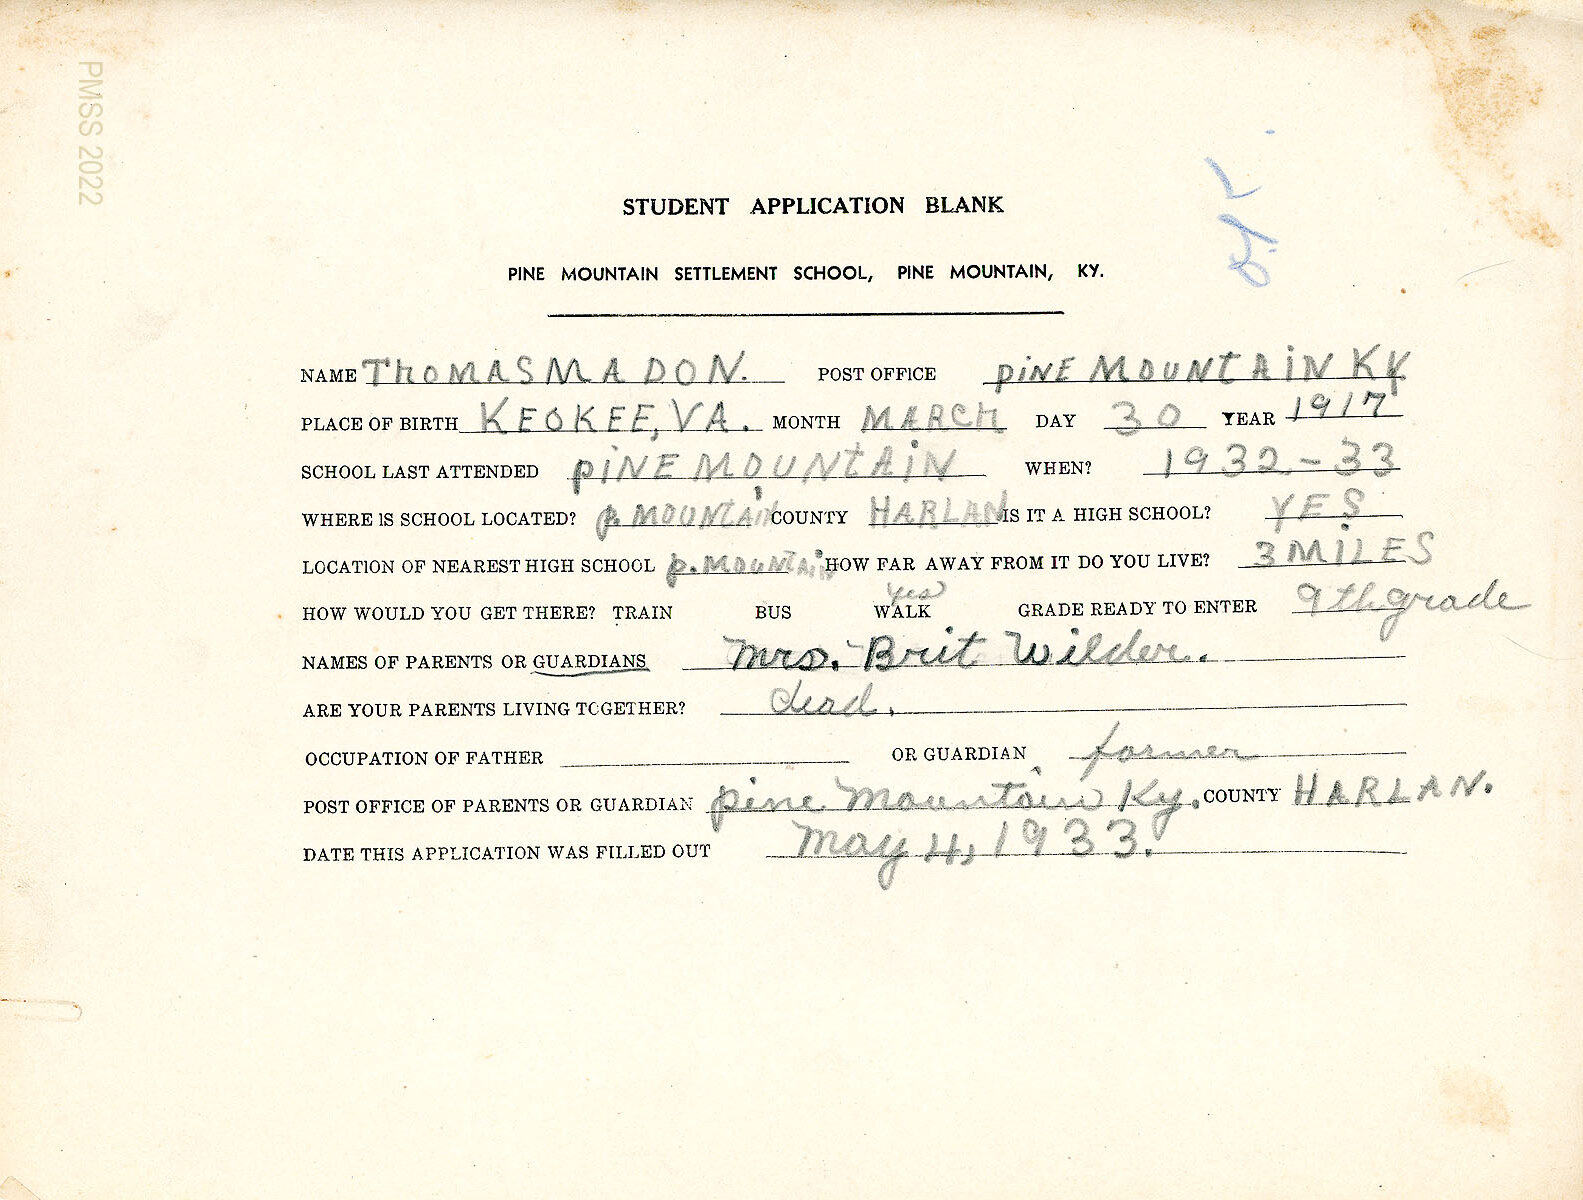 PMSS 2022
STUDENT APPLICATION BLANK
PINE MOUNTAIN SETTLEMENT SCHOOL, PINE MOUNTAIN, KY.
NAME THOMAS MADON. POST OFFICE PINE MOUNTAIN KY
PLACE OF BIRTH KEOKEE, VA. MONTH MARCH DAY 30 YEAR 1917
SCHOOL LAST ATTENDED PINE MOUNTAIN WHEN? 1932-33
WHERE IS SCHOOL LOCATED? P. MOUNTAIN COUNTY HARLAN IS IT A HIGH SCHOOL? YES
LOCATION OF NEAREST HIGH SCHOOL P. MOUNTAIN HOW FAR AWAY FROM IT DO YOU LIVE? 3 MILES
HOW WOULD YOU GET THERE? TRAIN BUS WALK yes GRADE READY TO ENTER 9th grade
NAMES OF PARENTS OR GUARDIANS Mrs. Brit Wilder.
ARE YOUR PARENTS LIVING TOGETHER? dead.
OCCUPATION OF FATHER OR GUARDIAN farmer
POST OFFICE OF PARENTS OR GUARDIAN pine Mountain Ky. COUNTY HARLAN.
DATE THIS APPLICATION WAS FILLED OUT May 4, 1933.